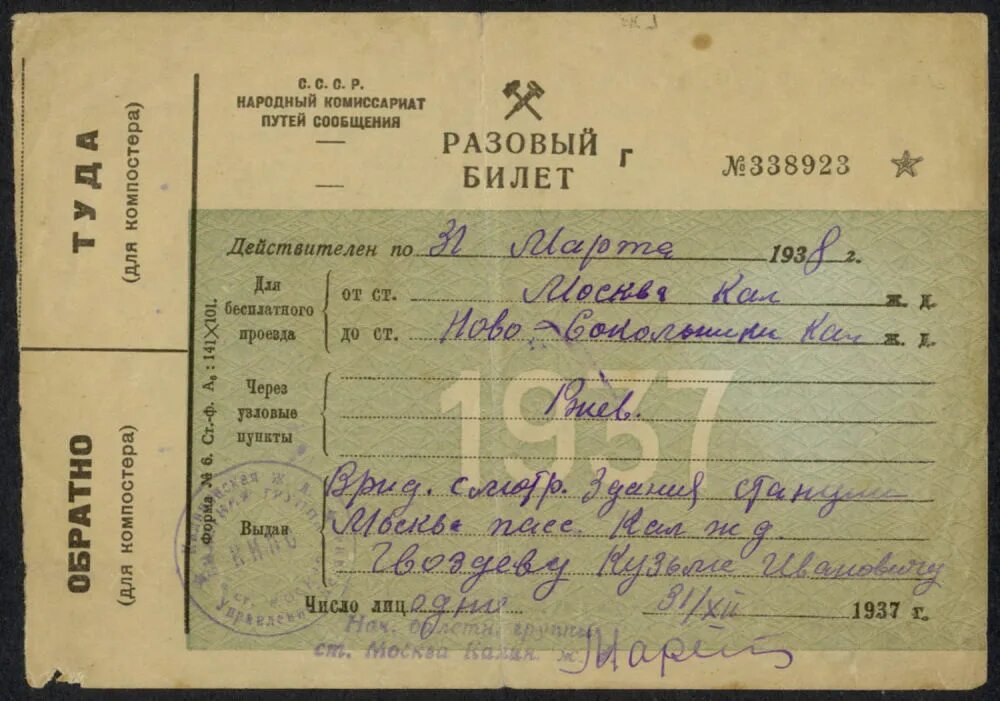 ТУДА
(для компостера)
ОБРАТНО
(для компостера)
С. С. С. Р.
НАРОДНЫЙ КОМИССАРИАТ
ПУТЕЙ СООБЩЕНИЯ
РАЗОВЫЙ г
БИЛЕТ
№338923
Действителен по 31 Марта 1938 г.
Для бесплатного проезда
от ст. Москва Кал ж. д.
до ст. Ново-Сокольники Кал ж. д.
1937
Через узловые пункты
Ржев.
Выдан
Врид. смотр. Здания станции
Москва пасс. Кал ж д.
Гвоздеву Кузьме Ивановичу
Число лиц одно 31/XII 1937 г.
Нач. билетн. группы
ст. Москва Калин. ж
Форма № 6. Ст.-ф. А₆: 141×101.